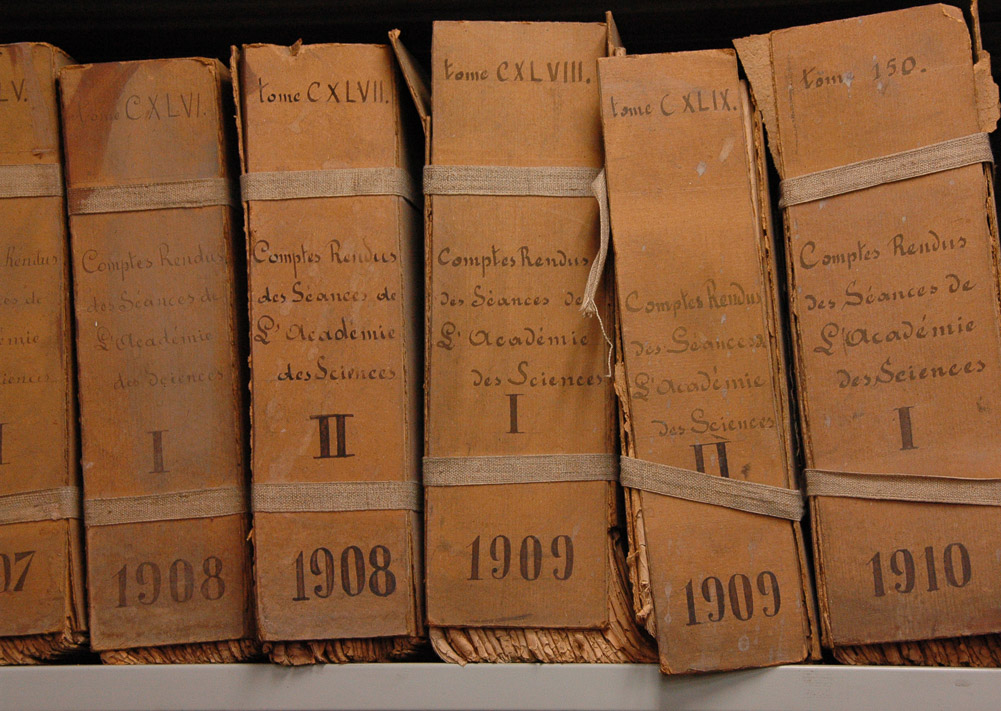 LV.
Rendus
07
tome CXLVI.
Comptes Rendus
des Séances de
L'Académie
des Sciences
I
1908
tome CXLVII.
Comptes Rendus
des Séances de
L'Académie
des Sciences
II
1908
tome CXLVIII.
Comptes Rendus
des Séances de
L'Académie
des Sciences
I
1909
tome CXLIX.
Comptes Rendus
des Séances de
L'Académie
des Sciences
II
1909
tome 150.
Comptes Rendus
des Séances de
L'Académie
des Sciences
I
1910